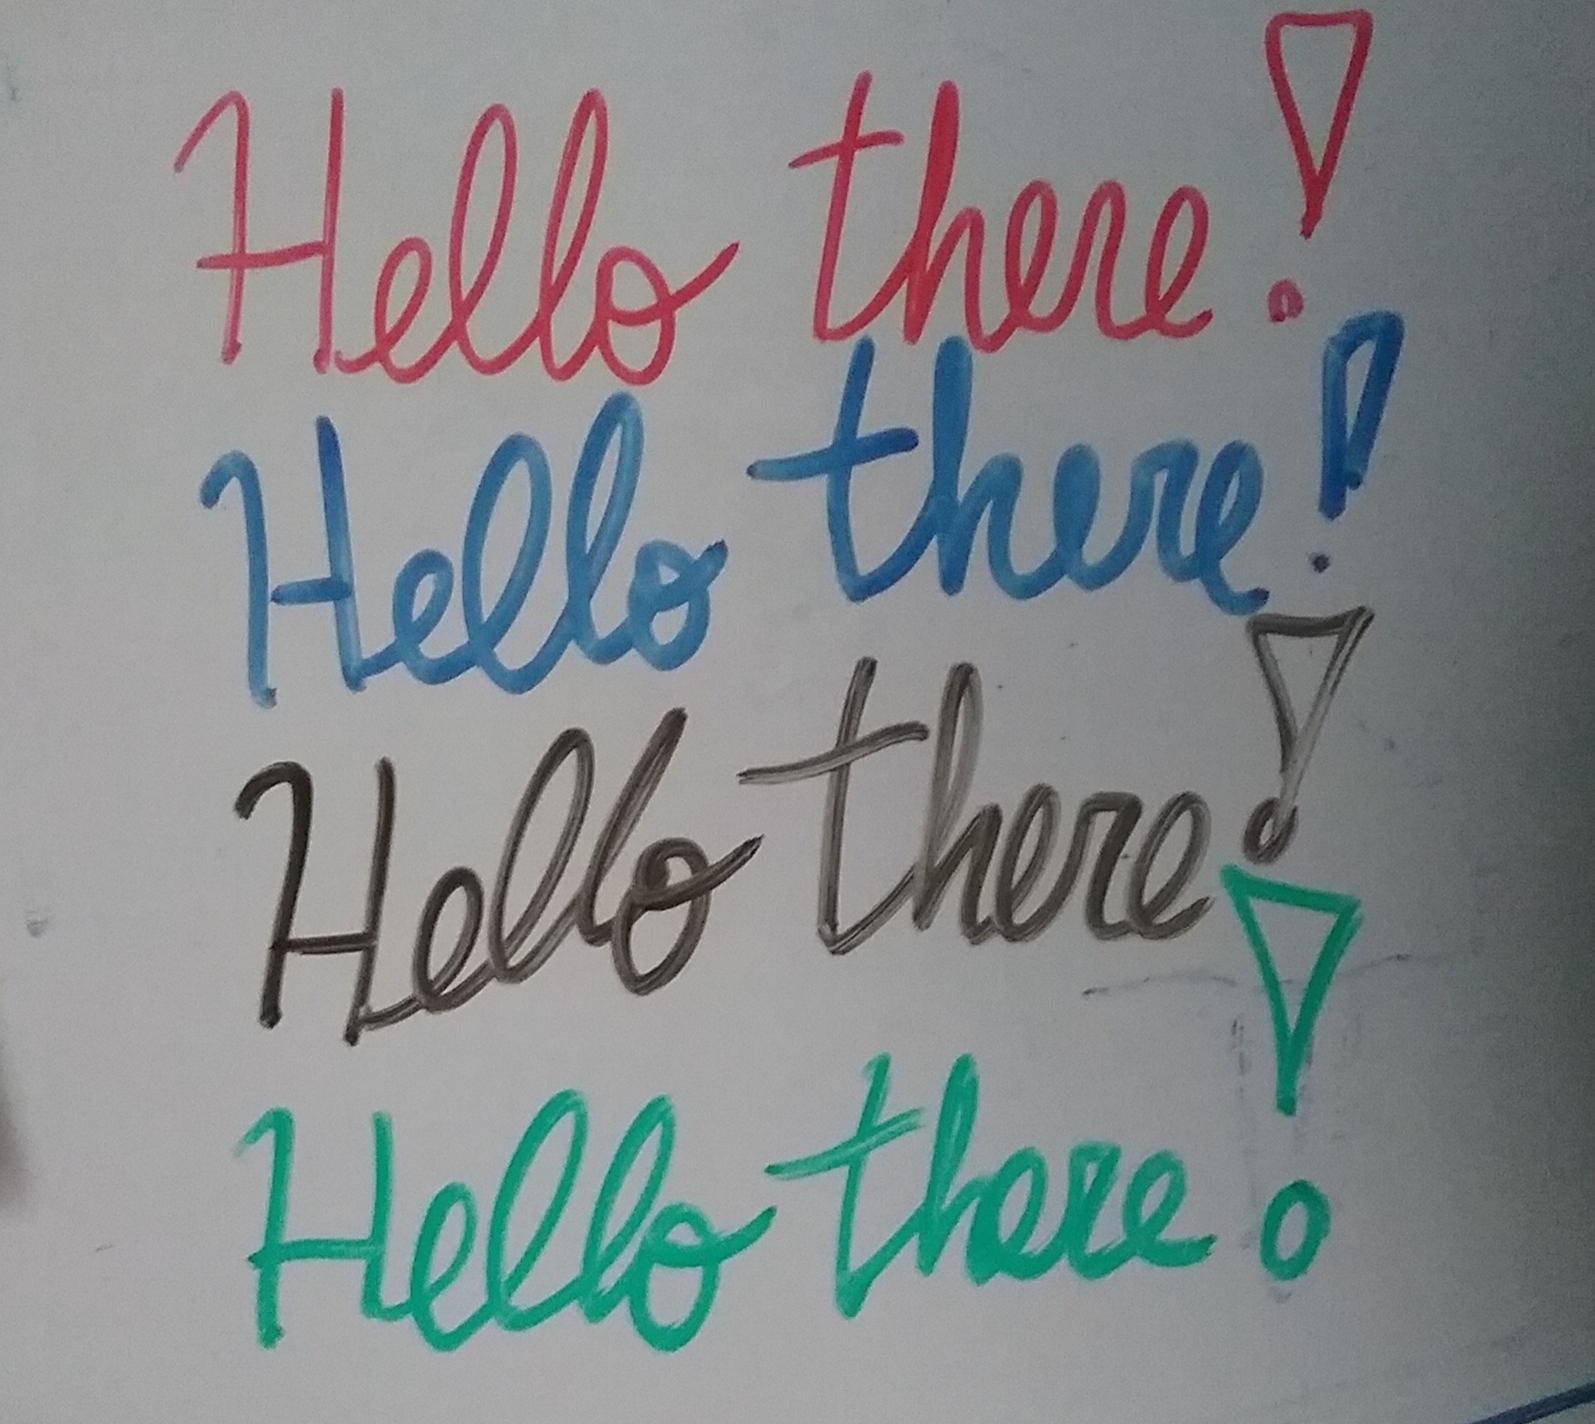 Hello there!
Hello there!
Hello there!
Hello there!